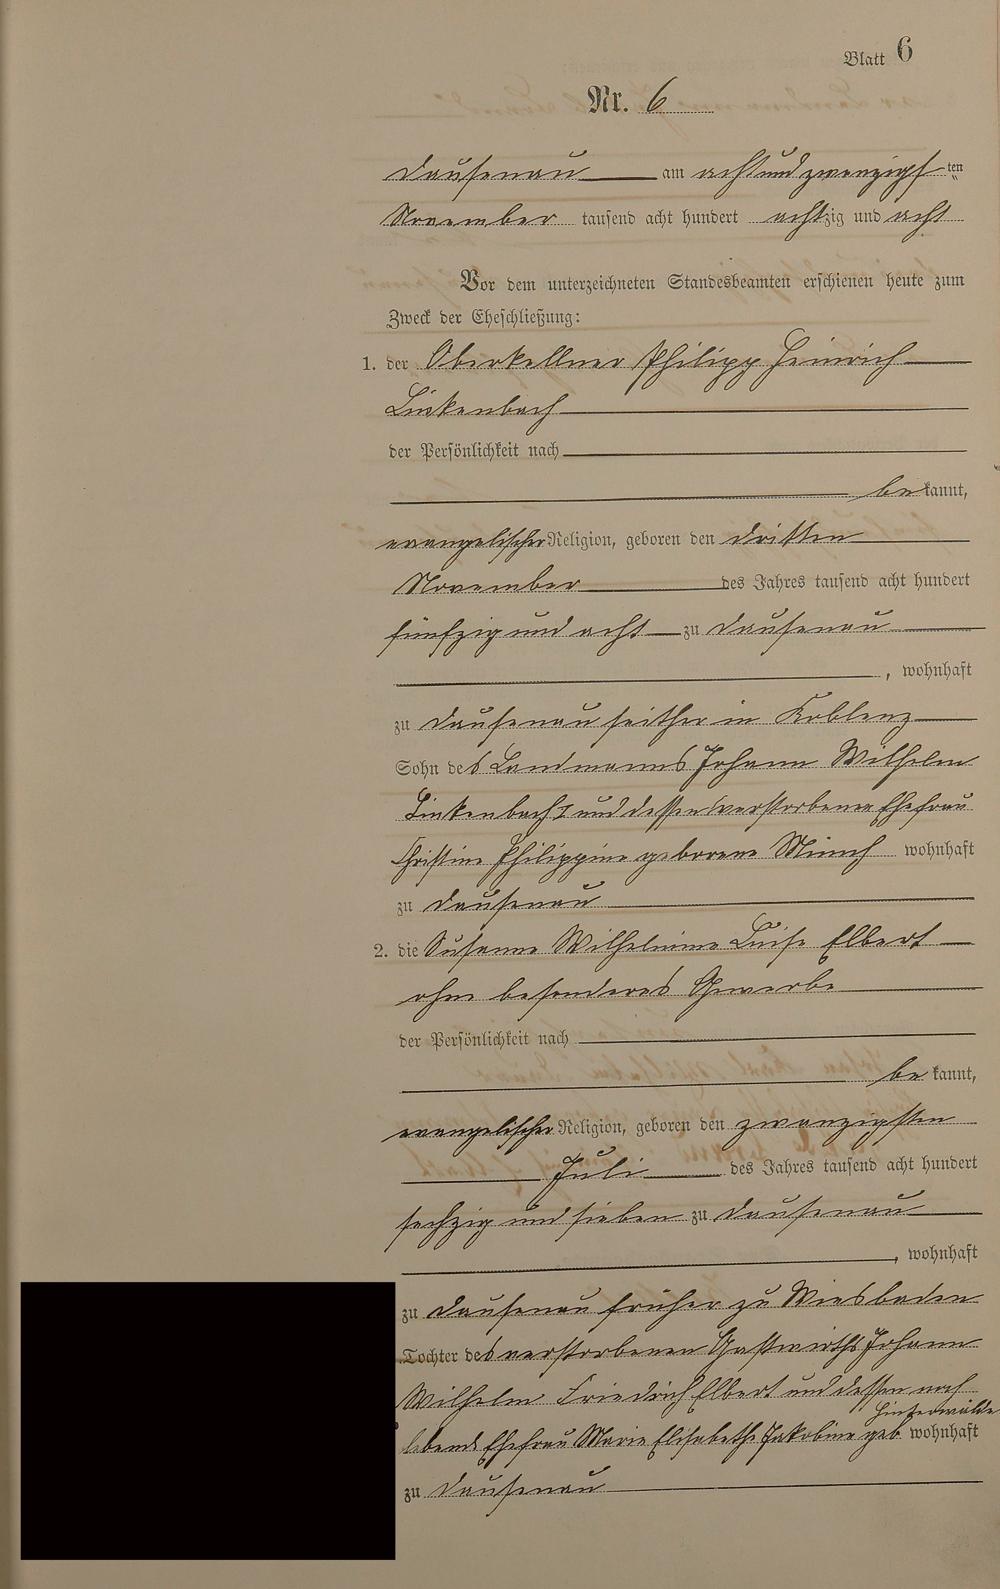 Blatt 6
Nr. 6
Dausenau am achtundzwanzigsten
November tausend acht hundert achtzig und acht
Vor dem unterzeichneten Standesbeamten erschienen heute zum
Zweck der Eheschließung:
1. der Oberkellner Philipp Heinrich
Linkenbach
der Persönlichkeit nach
bekannt,
evangelischer Religion, geboren den dritten
November des Jahres tausend acht hundert
fünfzig und acht zu Dausenau
, wohnhaft
zu Dausenau seither in Koblenz
Sohn des Landmanns Johann Wilhelm
Linkenbach I und dessen verstorbenen Ehefrau
Christine Philippine geborene Münch wohnhaft
zu Dausenau
2. die Susanne Wilhelmine Luise Elbert
ohne besonderes Gewerbe
der Persönlichkeit nach
bekannt,
evangelischer Religion, geboren den zwanzigsten
Juli des Jahres tausend acht hundert
sechzig und sieben zu Dausenau
, wohnhaft
zu Dausenau früher zu Wiesbaden
Tochter des verstorbenen Gastwirths Johann
Wilhelm Friedrich Elbert und dessen noch
lebende Ehefrau Marie Elisabethe Jakobine geb Hinterwälder wohnhaft
zu Dausenau